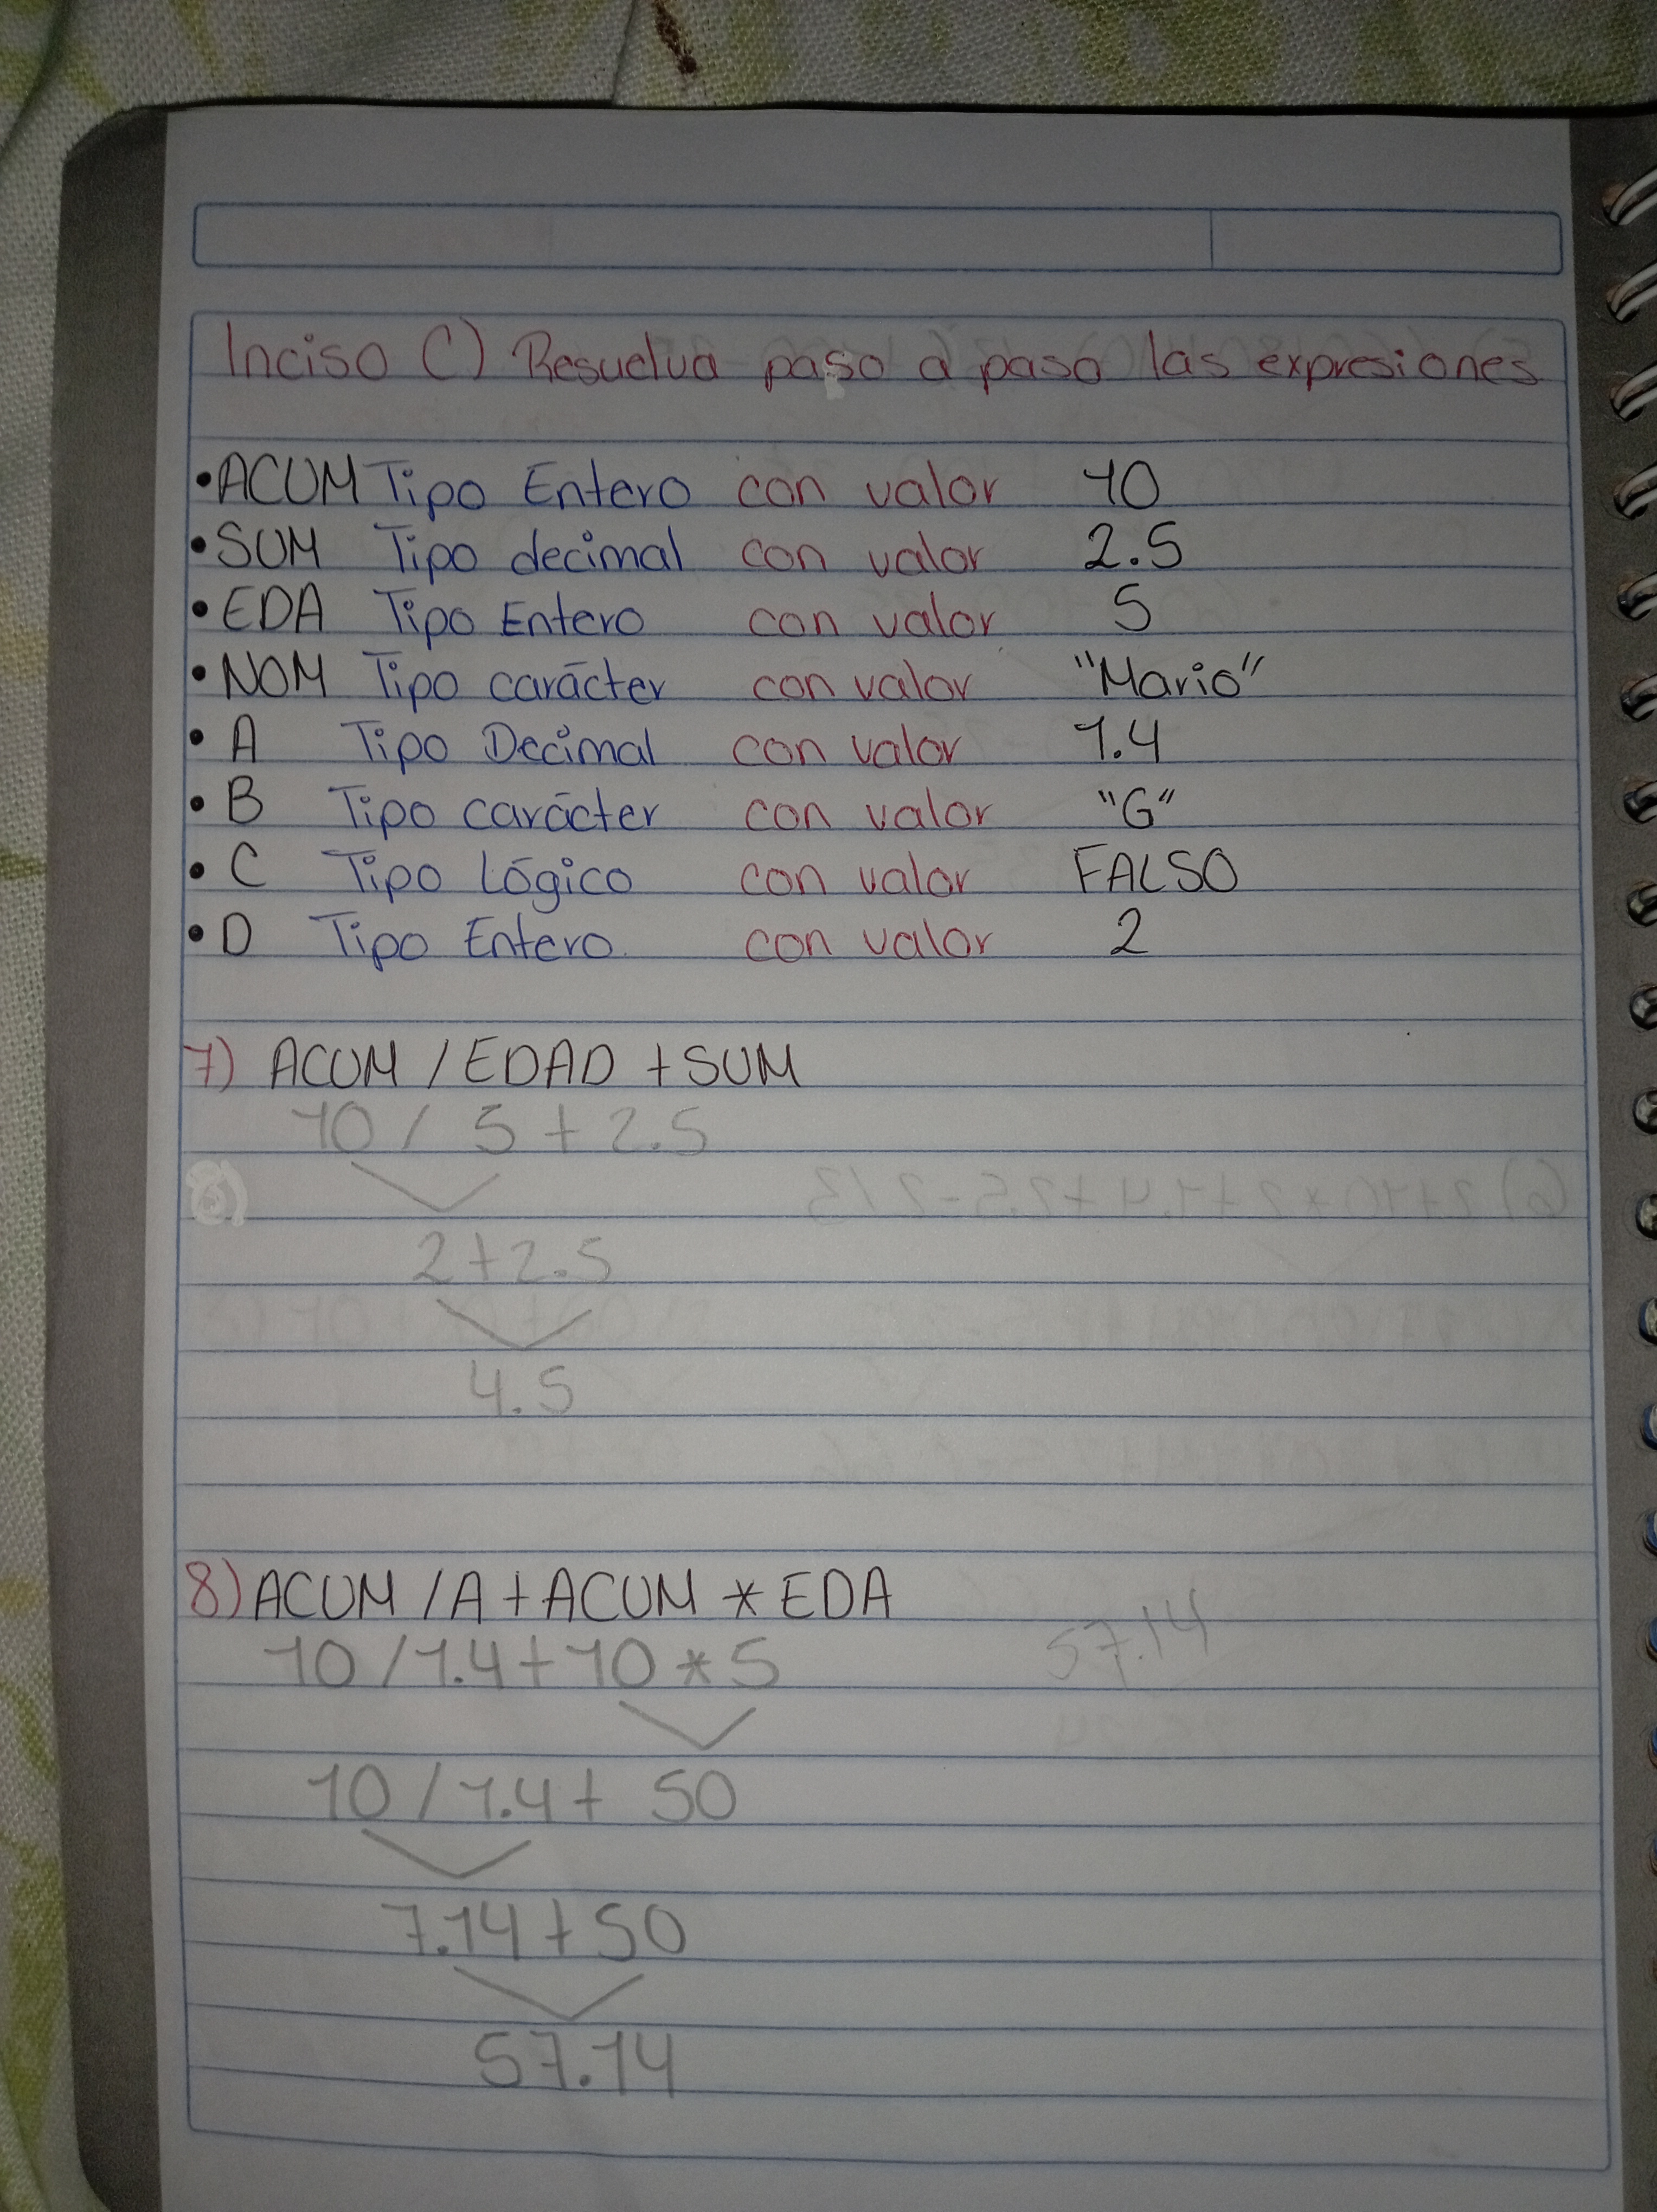 Inciso C) Resuelva paso a paso las expresiones
• ACUM Tipo Entero con valor 10
• SUM Tipo decimal con valor 2.5
• EDA Tipo Entero con valor 5
• NOM Tipo carácter con valor "Mario"
• A Tipo Decimal con valor 1.4
• B Tipo carácter con valor "G"
• C Tipo Lógico con valor FALSO
• D Tipo Entero con valor 2
7) ACUM / EDAD + SUM
10 / 5 + 2.5
2 + 2.5
4.5
8) ACUM / A + ACUM * EDA
10 / 1.4 + 10 * 5
57.14
10 / 1.4 + 50
7.14 + 50
57.14